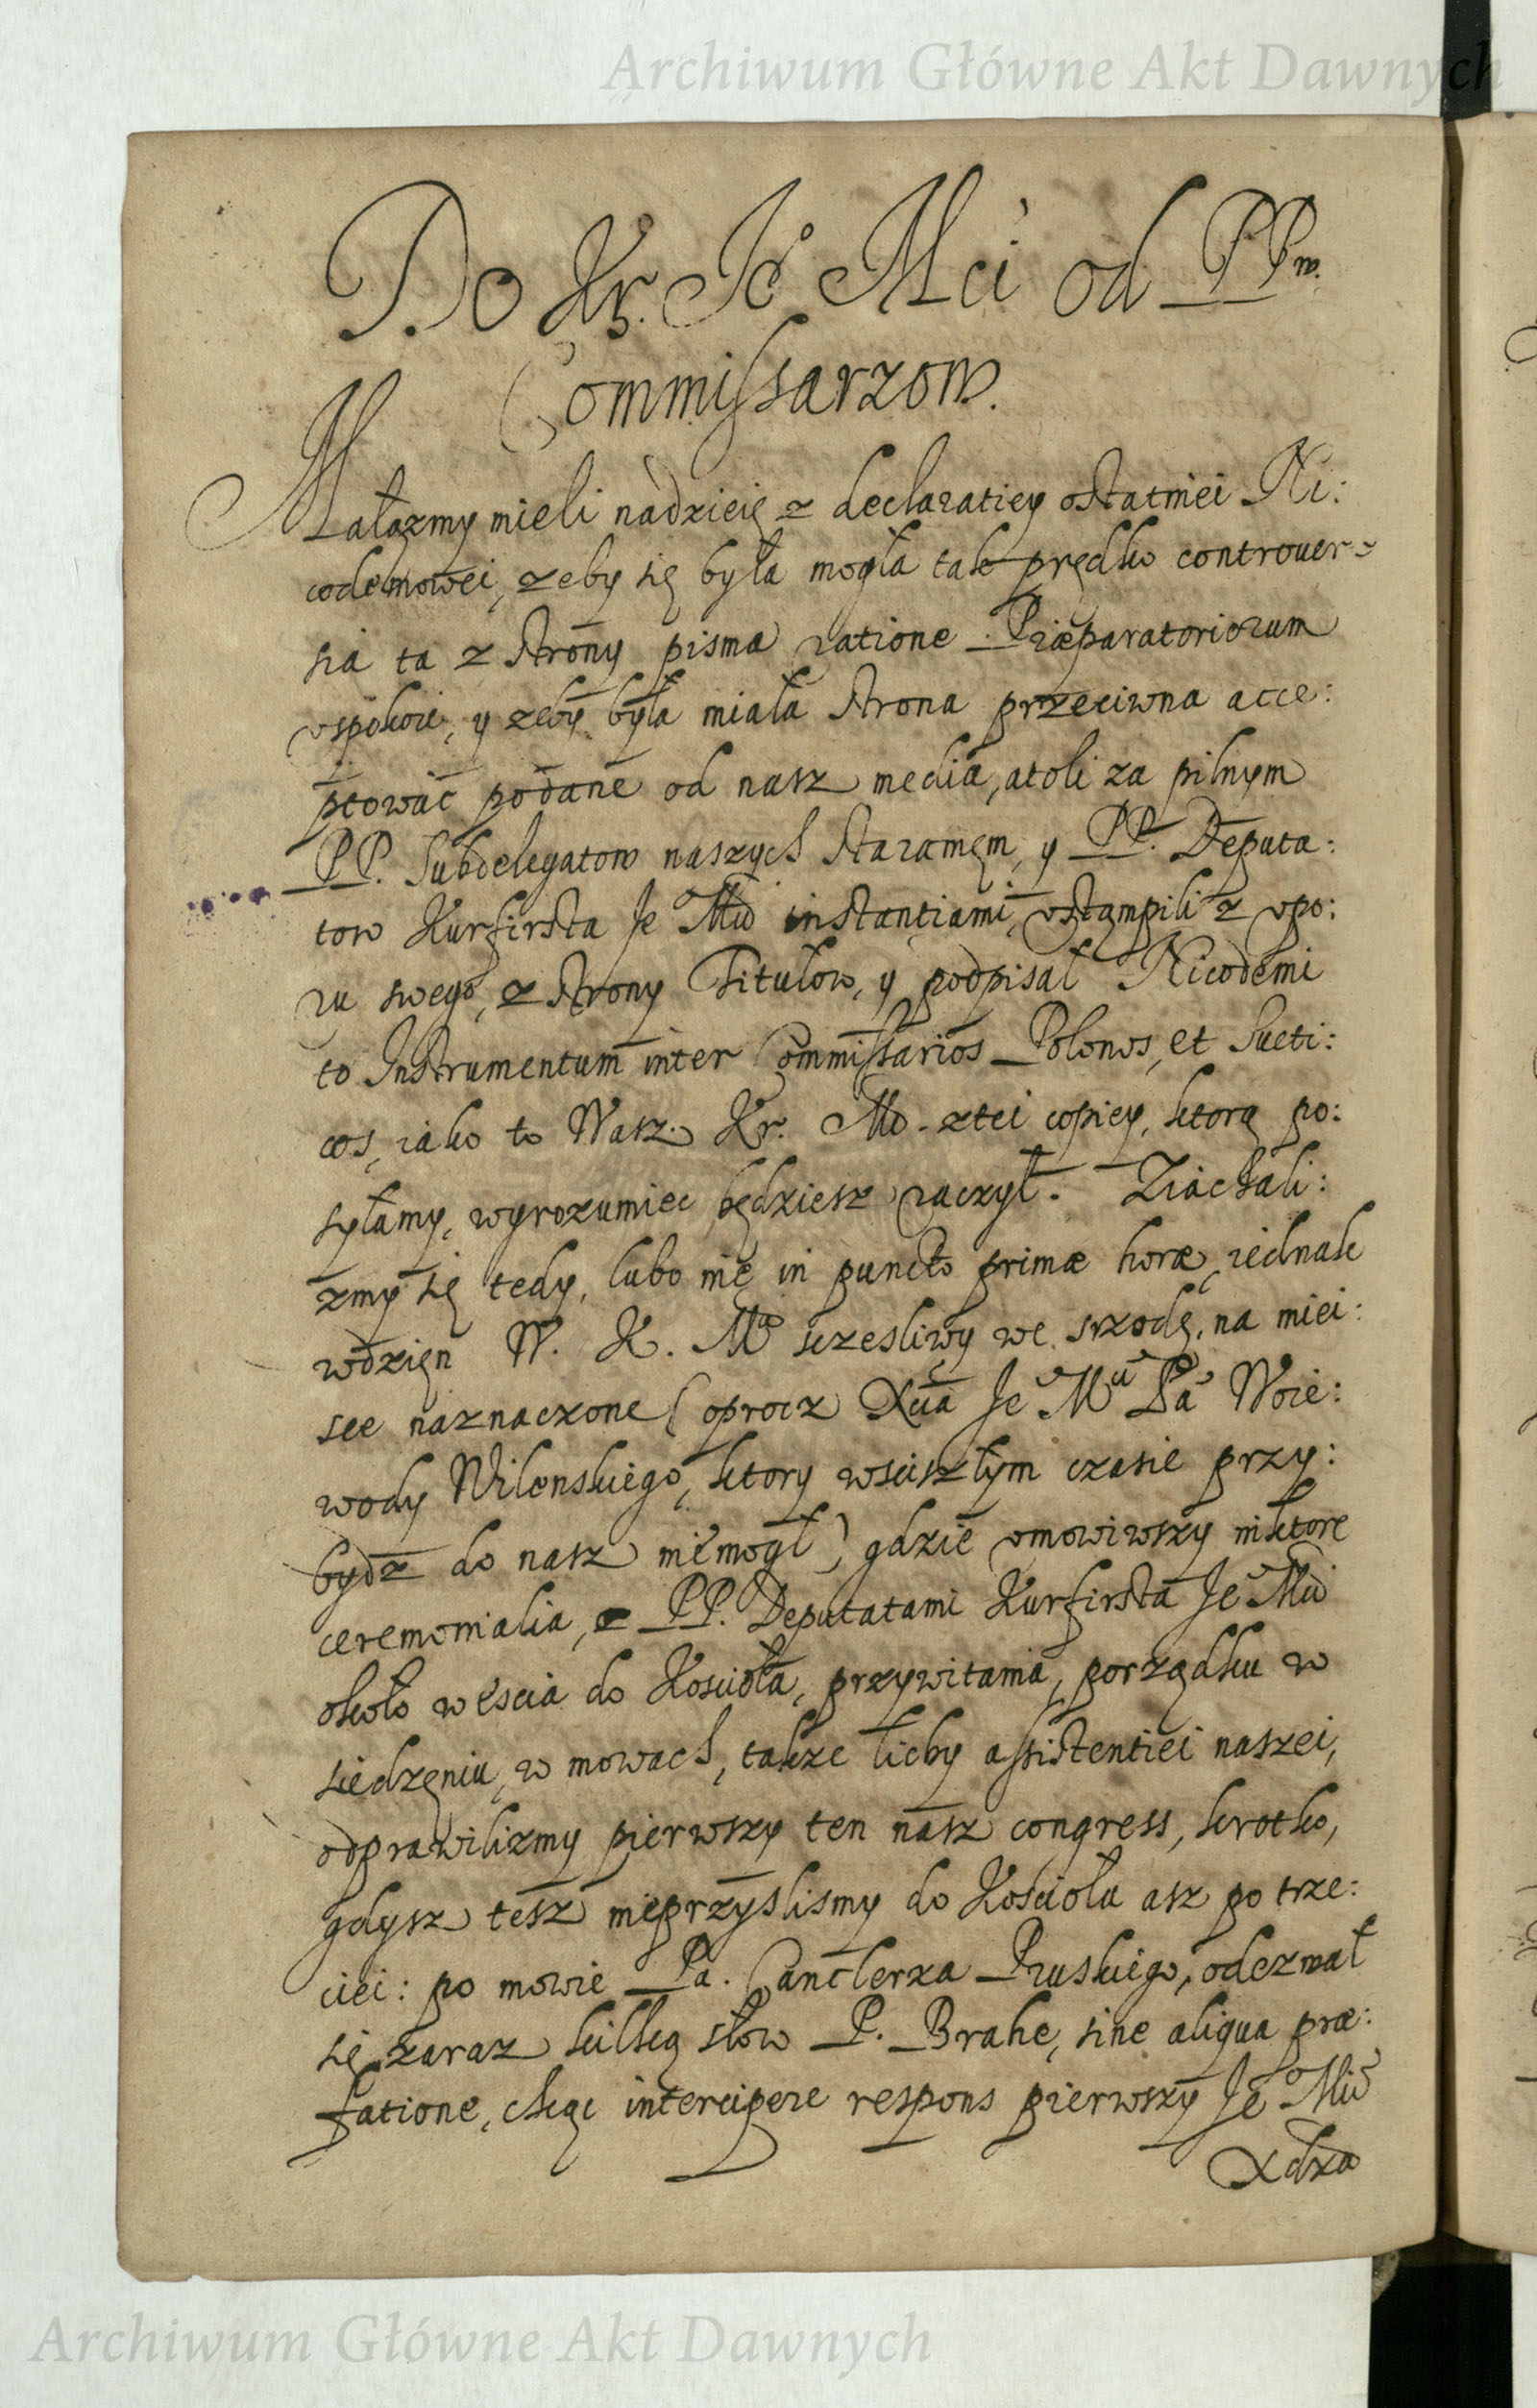 Archiwum Główne Akt Dawnych
Do Kr. Je Mci od PPw.
Commissarzow.
Małazmy mieli nadzieię z declaratiey ostatniei Ni:
codemowei, zeby się była mogła tak prędko controver-
sia ta z strony pisma ratione Præparatoriorum
uspokoic, y zeby była miała strona przeciwna acce:
ptowac podane od nasz media, atoli za pilnym
PP. Subdelegatow naszych staranięm, y PP. Deputa:
tow Kurfirsta Je Mci instantiami, ustąmpili z upo:
ru swego, z strony Titułow, y podpisał Nicodemi
to Instrumentum inter Commissarios Polonos, et Sueti:
cos, iako to Wasz. Kr. Mć. z tei copiey, ktorą po:
syłamy, wyrozumiec będziesz raczył. Ziachali:
zmy się tedy, lubo nie in puncto primæ horæ, iednak
wdzięn W. K. Mći sczesliwy we srzodę, na miei:
sce naznaczone (oprocz Xcia Je Mći Pa Woie:
wody Wilenskiego, ktory wsciszłym czasie przy:
bydz do nasz niemogł) gdzie omowiwszy niktore
ceremonialia, z PP. Deputatami Kurfirsta Je Mci
około wescia do Koscioła, przywitania, porządku w
siedzęniu, w mowach, także licby assistentiei naszei,
odprawilizmy pierwszy ten nasz congress, krotko,
gdysz tesz nieprzyslismy do Kosciołu asz po trze:
ciei: po mowie Pa. Canclerza Pruskiego, odezwał
się zaraz kilką słow P. Brahe, sine aliqua præ:
fatione, chcąc intercipere respons pierwszy Je Mci
Xdza
Archiwum Główne Akt Dawnych